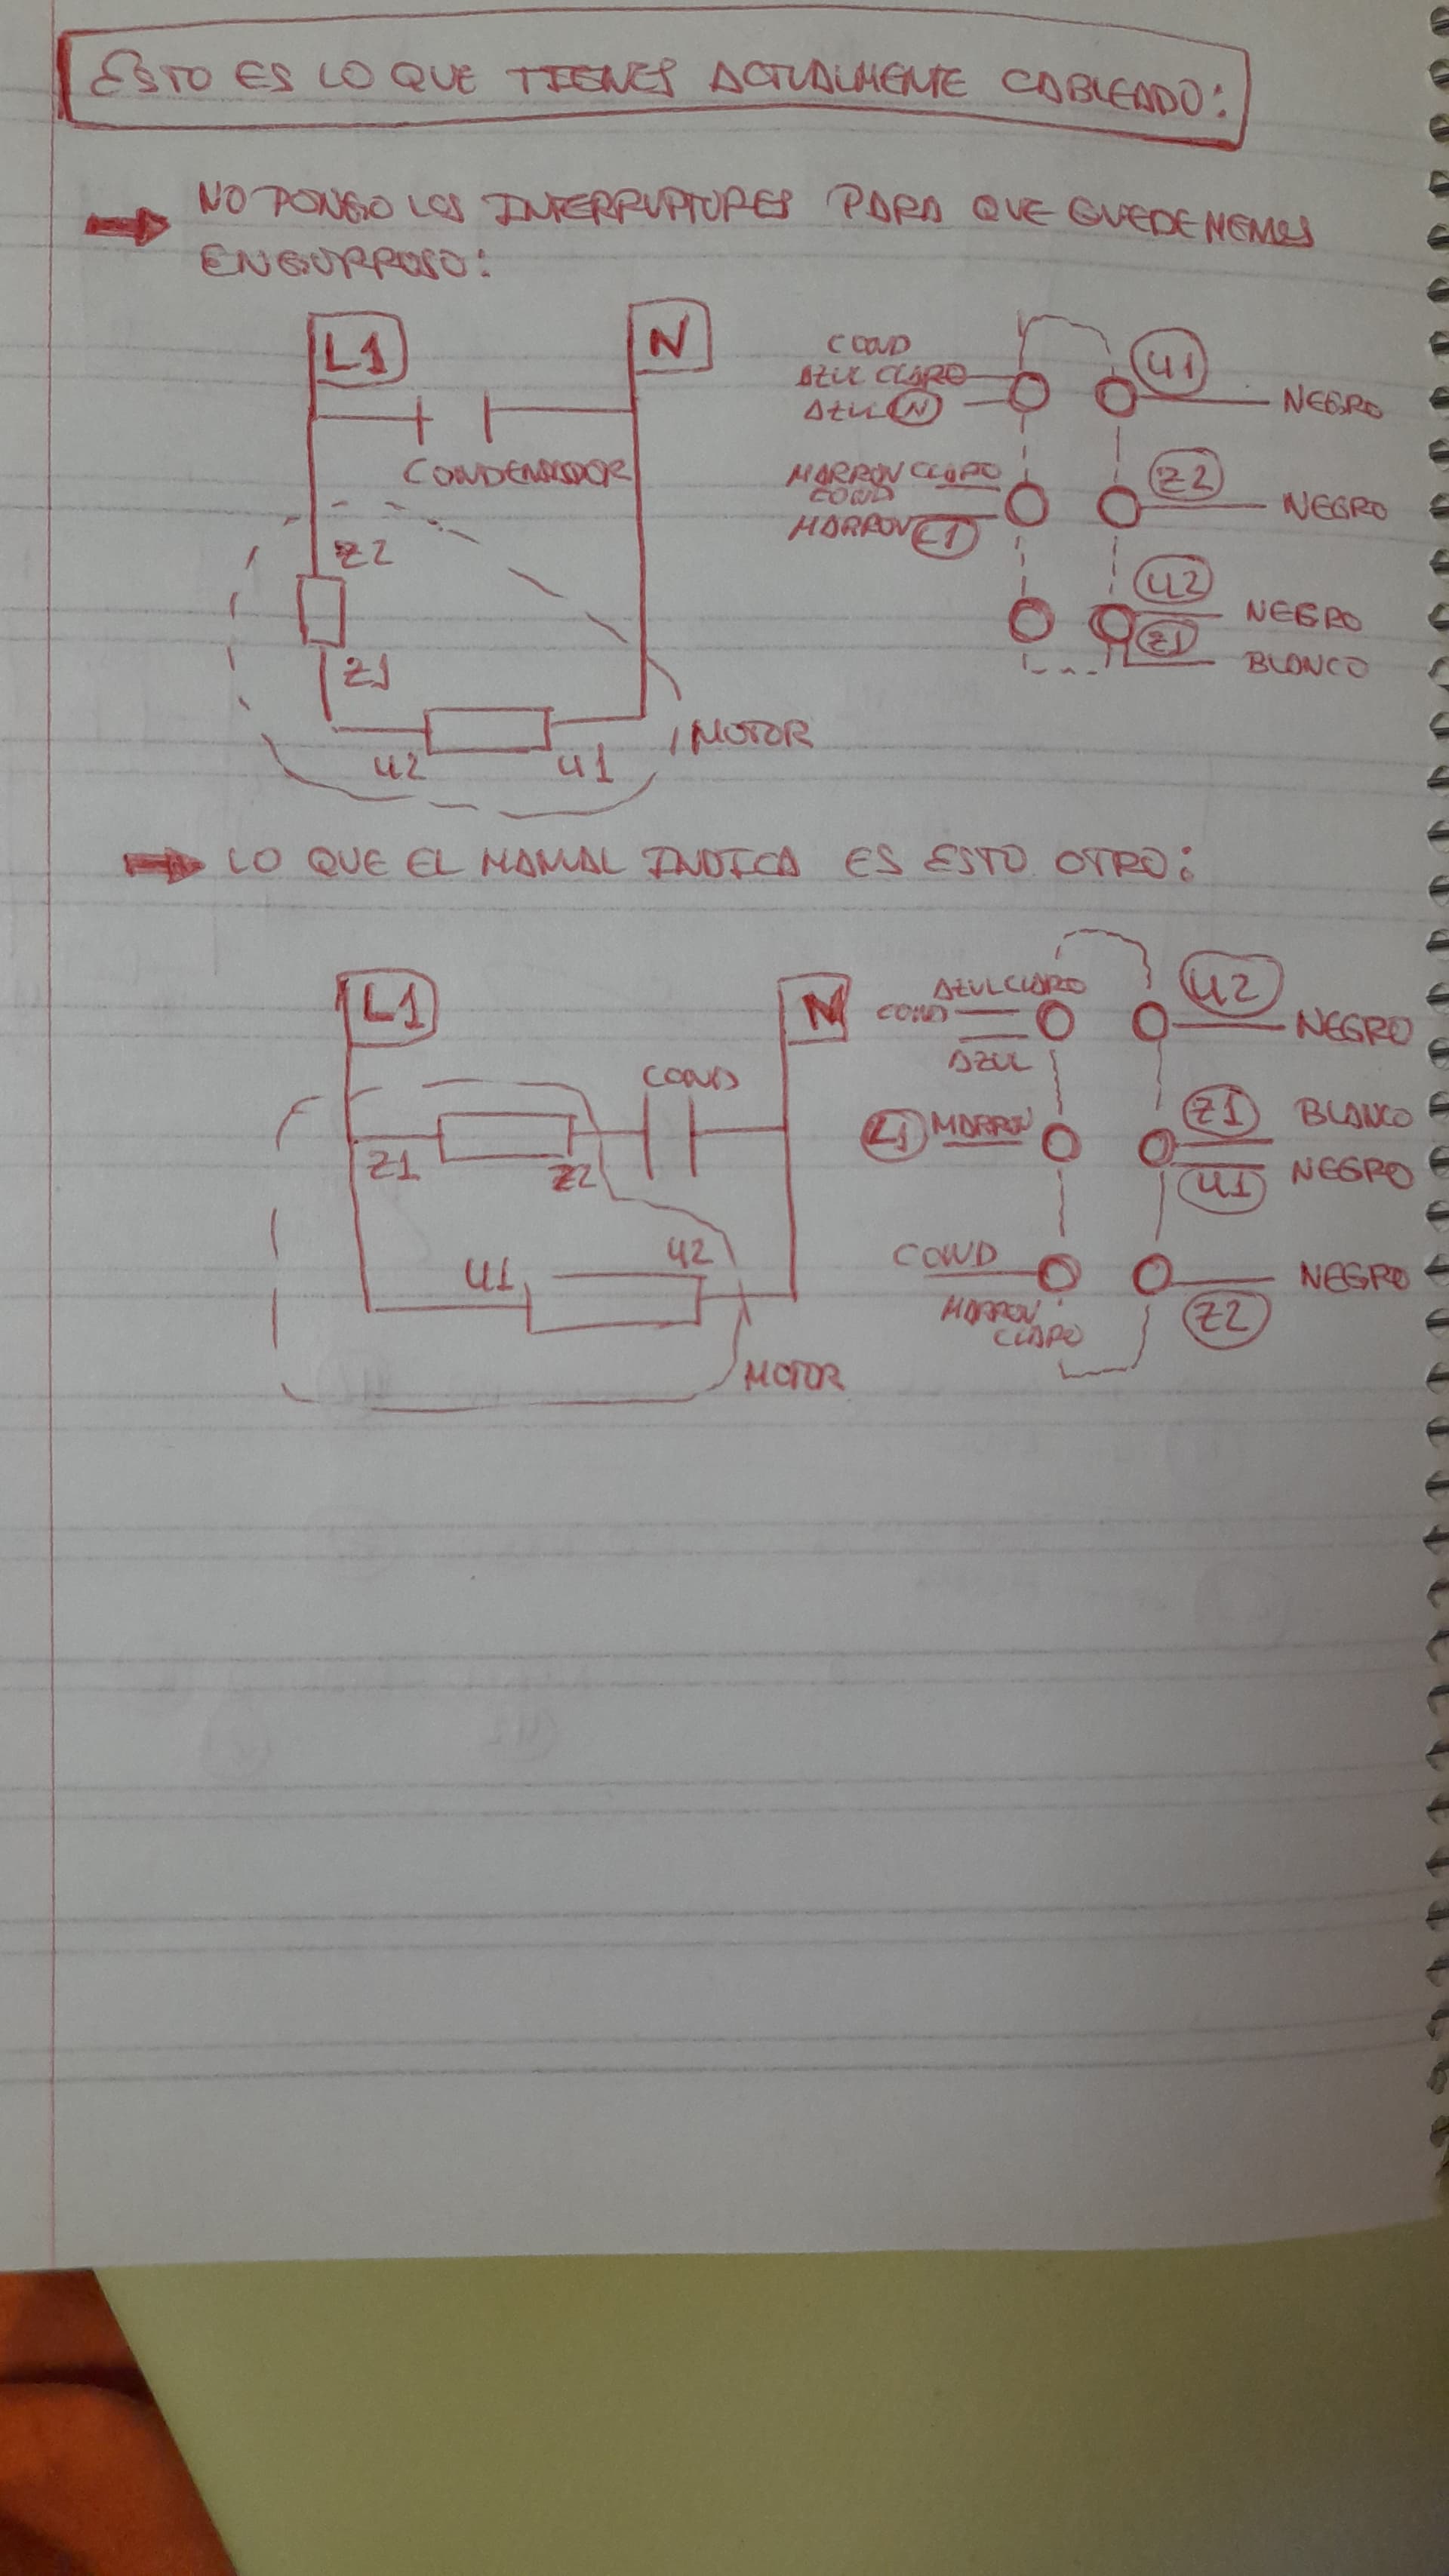 ESTO ES LO QUE TIENES ACTUALMENTE CABLEADO:
NO PONGO LOS INTERRUPTORES PARA QUE QUEDE MENOS
ENGORROSO:
L1
N
CONDENSADOR
Z2
Z1
U2
U1
MOTOR
COND
AZUL CLARO
AZUL N
U1
NEGRO
MARRON CLARO
COND
MARRON L1
Z2
NEGRO
U2
NEGRO
Z1
BLANCO
LO QUE EL MANUAL INDICA ES ESTO OTRO:
L1
N
COND
Z1
Z2
U1
U2
MOTOR
AZUL CLARO
COND
AZUL
U2
NEGRO
L1 MARRON
Z1 BLANCO
U1 NEGRO
COND
MARRON
CLARO
NEGRO
Z2